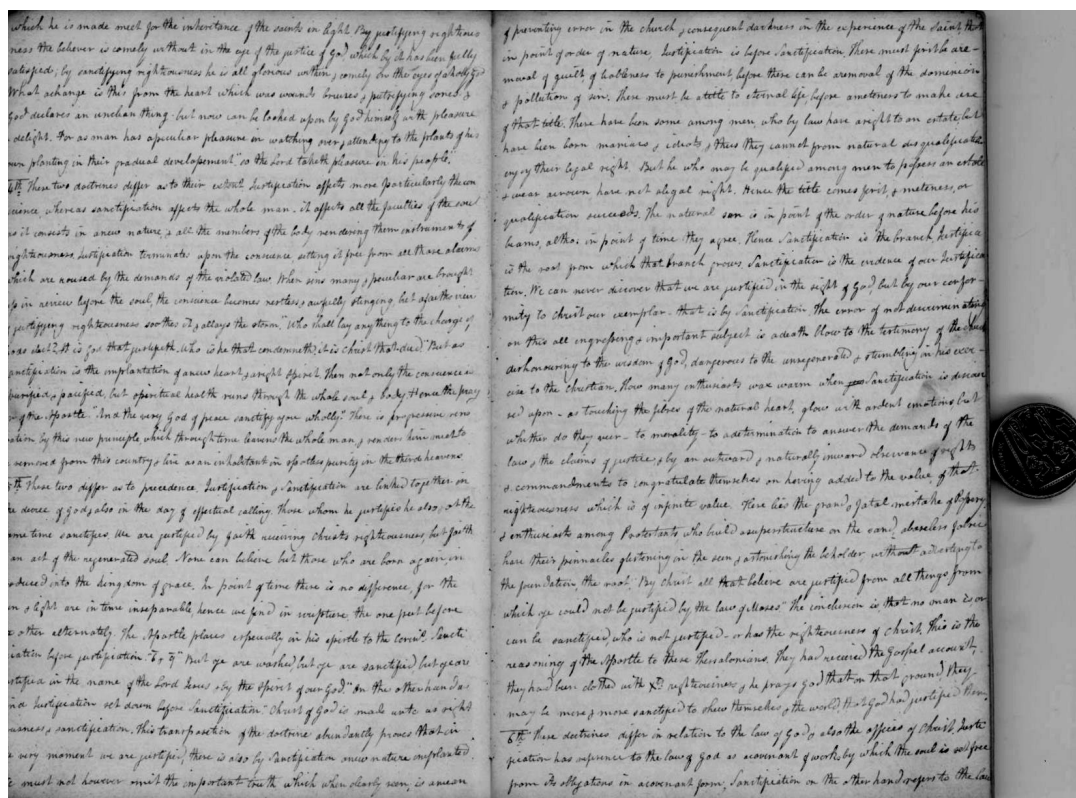 which he is made meet for the inheritance of the saints in light. By justifying righteous
ness the believer is comely without in the eye of the justice of God, which by it has been fully
satisfied; by sanctifying righteousness he is all glorious within, comely in the eyes of a holy God
What a change is this from the heart which was wounds bruises, & putrifying sores, &
God declares an unclean thing - but now can be looked upon by God himself with pleasure
& delight. For as man has a peculiar pleasure in watching over, & attending to the plants of his
own planting in their gradual developement," so the Lord taketh pleasure in his people."
4th. These two doctrines differ as to their extent. Justification affects more particularly the con
science whereas sanctification affects the whole man - it affects all the faculties of the soul
as it consists in a new nature, & all the members of the body rendering them instruments of
righteousness. Justification terminates upon the conscience setting it free from all those alarms
which are roused by the demands of the violated law. When sins many, & peculiar are brought
up in review before the soul, the conscience becomes restless & awfully stinging, but a faith view
of justifying righteousness soothes it, & allays the storm. "Who shall lay any thing to the charge of
Gods elect? It is God that justifieth. Who is he that condemneth, it is Christ that died." But as
sanctification is the implantation of a new heart, & a right Spirit. Then not only the conscience is
purified, & pacified, but a spiritual health runs through the whole soul, & body. Hence the pray
er of the Apostle "And the very God of peace sanctify you wholly." There is progressive reno
vation by this new principle which through time leavens the whole man, & renders him meet to
be removed from this country & live as an inhabitant in spotless purity in the third heavens
5th. These two differ as to precedence. Justification & Sanctification are linked together in
the decree of God, & also in the day of effectual calling. Those whom he justifies he also, at the
same time sanctifies. We are justified by faith receiving Christs righteousness, but faith
is an act of the regenerated soul. None can believe but those who are born again, in
troduced into the kingdom of grace. In point of time there is no difference, for the
sun & light are in time inseparable, hence we find in scripture the one put before
the other alternately. The Apostle places especially in his epistle to the Corinth. Sancti
fication before justification "But ye are washed but ye are sanctified but ye are
justified in the name of the Lord Jesus & by the Spirit of our God." On the other hand we
find Justification set down before Sanctification." Christ of God is made unto us right
eousness & sanctification. This transposition of the doctrine abundantly proves that in
the very moment we are justified, there is also by Sanctification a new nature implanted
We must not however omit the important truth which when clearly seen, is a mean
of preventing error in the church, & consequent darkness in the experience of the Saint, that
in point of order of nature Justification is before Sanctification. There must first be a re-
moval of guilt of liableness to punishment, before there can be a removal of the dominion
& pollution of sin. There must be a title to eternal life, before a meteness to make use
of that title. There have been some among men, who by law have a right to an estate, but
have been born maniacs, & idiots, & thus they cannot from natural disqualification
enjoy their legal right. But he who may be qualified among men to possess an estate
& wear a crown have not a legal right. Hence the title comes first, & meteness, or
qualification succeeds. The natural sun is in point of the order of nature before his
beams, altho' in point of time they agree. Hence Sanctification is the branch, Justifica
is the root from which that branch grows. Sanctification is the evidence of our Justifica
tion. We can never discover that we are justified in the sight of God, but by our confor-
mity to Christ our exemplar - that is by Sanctification. The error of not discriminating
on this all engrossing & important subject is a death blow to the testimony of the Church
dishonouring to the wisdom of God, dangerous to the unregenerated, & stumbling in his exer-
cise to the Christian. How many enthusiasts wax warm when Sanctification is discour
sed upon - as touching the fibres of the natural heart, glow with ardent emotions but
whither do they veer - to morality - to a determination to answer the demands of the
law, & the claims of justice, & by an outward & naturally inward observance of rights
& commandments to congratulate themselves on having added to the value of that
righteousness which is of infinite value. Here lies the grand & fatal mistake of Popery
& enthusiasts among Protestants who build a superstructure on the sand, a baseless fabric
have their pinnacles glistening in the sun & astonishing the beholder, without adverting to
the foundation, the root. "By Christ all that believe are justified from all things from
which ye could not be justified by the law of Moses." The conclusion is, that no man is or
can be sanctified who is not justified - or has the righteousness of Christ. This is the
reasoning of the Apostle to these Thessalonians. They had received the Gospel account,
they had been clothed with Xts righteousness, & he prays God that on that ground, they
may be more & more sanctified to shew themselves, & the world that God had justified them
6th. These doctrines differ in relation to the law of God, & also the offices of Christ. Justi
fication has reference to the law of God as a covenant of work, by which the soul is set free
from its obligations in a covenant form, Sanctification on the other hand refers to the law